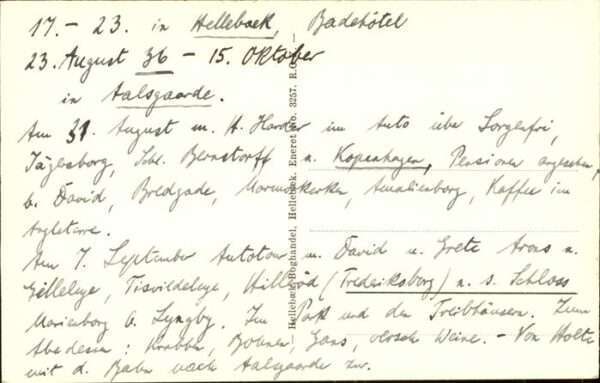 17. - 23. in Hellebaek, Badehôtel
23. August 36 - 15. Oktober
in Aalsgaarde.
Am 31. August m. H. Harder im Auto über Sorgenfri,
Jägersborg, Schl. Bernstorff n. Kopenhagen, Pensionen angesehen,
b. David, Bredgade, Marmorkirken, Amalienborg, Kaffee im
Angleterre.
Am 7. September Autotour m. David u. Grete Arons n.
Gilleleje, Tisvildeleje, Hilleröd (Frederiksborg) n. s. Schloss
Marienborg b. Lyngby. Im Park und den Treibhäusen. Zum
Abedessen: Krabben, Bohnen, Gans, Weine. - Von Holte
mit d. Bahn nach Aalsgaarde zur.
Hellebæk Boghandel, Hellebæk. Eneret No. 3257. R.O.